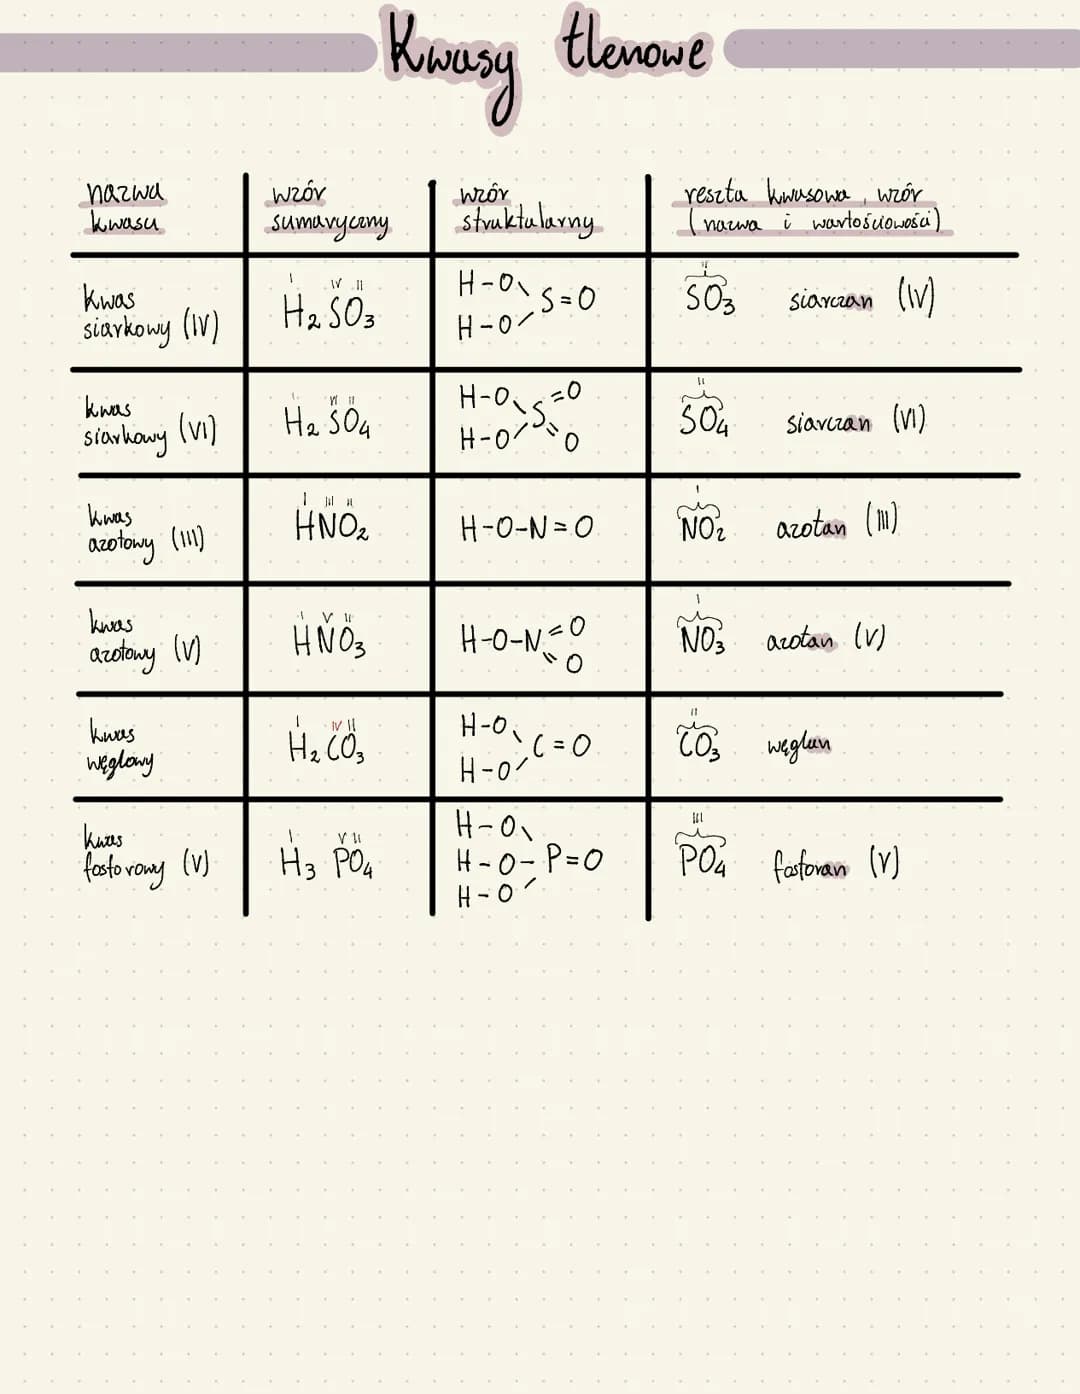 Kwasy tlenowe
nazwa kwasu
wzór sumaryczny
wzór struktularny
reszta kwasowa, wzór
(nazwa i wartościowości)
kwas
siarkowy (IV)
I IV II
H₂SO₃
H-O\
S=O
H-O/
II
SO₃ siarczan (IV)
kwas
siarkowy (VI)
I VI II
H₂SO₄
H-O\ =O
S
H-O/ =O
II
SO₄ siarczan (VI)
kwas
azotowy (III)
I III II
HNO₂
H-O-N=O
I
NO₂ azotan (III)
kwas
azotowy (V)
I V II
HNO₃
H-O-N=O
=O
I
NO₃ azotan (V)
kwas
węglowy
I IV II
H₂CO₃
H-O\
C=O
H-O/
II
CO₃ węglan
kwas
fosforowy (V)
I V II
H₃PO₄
H-O\
H-O-P=O
H-O/
III
PO₄ fosforan (V)